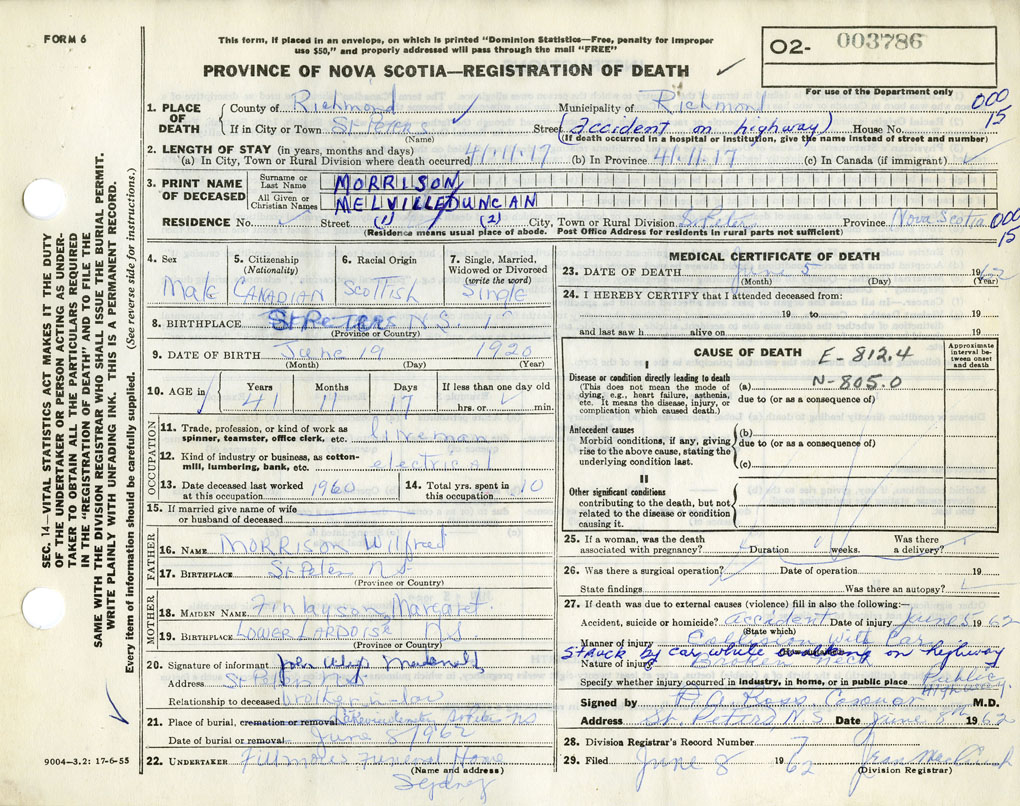 FORM 6
This form, if placed in an envelope, on which is printed "Dominion Statistics—Free, penalty for improper
use $50," and properly addressed will pass through the mail "FREE"
PROVINCE OF NOVA SCOTIA—REGISTRATION OF DEATH
O2- 003786
For use of the Department only
000
15
1. PLACE OF DEATH
County of Richmond Municipality of Richmond
If in City or Town St Peters Street (accident on highway) House No.
(Name) (If death occurred in a hospital or institution, give the name instead of street and number)
2. LENGTH OF STAY (in years, months and days)
(a) In City, Town or Rural Division where death occurred 41.11.17 (b) In Province 41.11.17 (c) In Canada (if immigrant)
3. PRINT NAME OF DECEASED
Surname or Last Name MORRISON
All Given or Christian Names MELVILLE DUNCAN
(1) (2)
RESIDENCE No. Street City, Town or Rural Division St. Peters Province Nova Scotia
(Residence means usual place of abode. Post Office Address for residents in rural parts not sufficient)
000
15
4. Sex
Male
5. Citizenship
(Nationality)
CANADIAN
6. Racial Origin
Scottish
7. Single, Married, Widowed or Divorced
(write the word)
Single
8. BIRTHPLACE St Peters N.S.
(Province or Country)
9. DATE OF BIRTH June 19 1920
(Month) (Day) (Year)
10. AGE in Years Months Days If less than one day old
41 11 17 hrs. or min.
OCCUPATION
11. Trade, profession, or kind of work as
spinner, teamster, office clerk, etc. lineman
12. Kind of industry or business, as cotton-
mill, lumbering, bank, etc. electrical
13. Date deceased last worked
at this occupation 1960
14. Total yrs. spent in
this occupation 10
15. If married give name of wife
or husband of deceased
FATHER
16. NAME MORRISON Wilfred
17. BIRTHPLACE St Peters NS
(Province or Country)
MOTHER
18. MAIDEN NAME Finlayson Margaret
19. BIRTHPLACE LOWER LARDOISE NS
(Province or Country)
20. Signature of informant John
Address St Peters NS
Relationship to deceased brother in law
21. Place of burial, cremation or removal NS
Date of burial or removal June 8 1962
22. UNDERTAKER Fillmores Funeral Home
(Name and address)
Sydney
MEDICAL CERTIFICATE OF DEATH
23. DATE OF DEATH June 5 1962
(Month) (Day) (Year)
24. I HEREBY CERTIFY that I attended deceased from:
19 to 19
and last saw h alive on 19
CAUSE OF DEATH E-812.4
N-805.0
Approximate interval between onset and death
I
Disease or condition directly leading to death
(This does not mean the mode of
dying, e.g., heart failure, asthenia,
etc. It means the disease, injury, or
complication which caused death.)
(a)
due to (or as a consequence of)
Antecedent causes
Morbid conditions, if any, giving
rise to the above cause, stating the
underlying condition last.
(b)
due to (or as a consequence of)
(c)
II
Other significant conditions
contributing to the death, but not
related to the disease or condition
causing it.
25. If a woman, was the death Was there
associated with pregnancy? Duration weeks. a delivery?
26. Was there a surgical operation? Date of operation 19
State findings Was there an autopsy?
27. If death was due to external causes (violence) fill in also the following:—
Accident, suicide or homicide? accident Date of injury June 5 1962
(State which)
Manner of injury Collision with Car
struck by car while walking on highway
Nature of injury Broken neck
Specify whether injury occurred in industry, in home, or in public place Public
Highway.
Signed by Ross, Coroner M.D.
Address St. Peters, N.S Date June 8th 1962
28. Division Registrar's Record Number 7
29. Filed June 8 1962 Jean
(Division Registrar)
9004—3.2: 17-6-55
SEC. 14—VITAL STATISTICS ACT MAKES IT THE DUTY
OF THE UNDERTAKER OR PERSON ACTING AS UNDER-
TAKER TO OBTAIN ALL THE PARTICULARS REQUIRED
IN THE "REGISTRATION OF DEATH" AND TO FILE THE
SAME WITH THE DIVISION REGISTRAR WHO SHALL ISSUE THE BURIAL PERMIT.
WRITE PLAINLY WITH UNFADING INK. THIS IS A PERMANENT RECORD.
Every item of information should be carefully supplied. (See reverse side for instructions.)